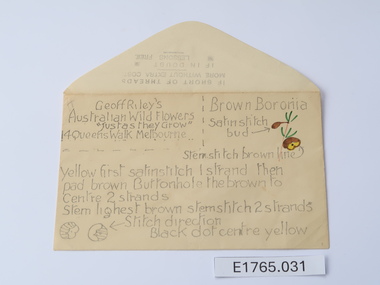 Geoff Riley's
Australian Wild Flowers
"Just as they Grow"
14 Queens Walk Melbourne
Brown Boronia
Satinstitch
bud
Stemstitch brown line
Yellow first satinstitch 1 strand then
pad brown Buttonhole the brown to
centre 2 strands
Stem lighest brown stemstitch 2 strands
Stitch direction
Black dot centre yellow
E1765.031